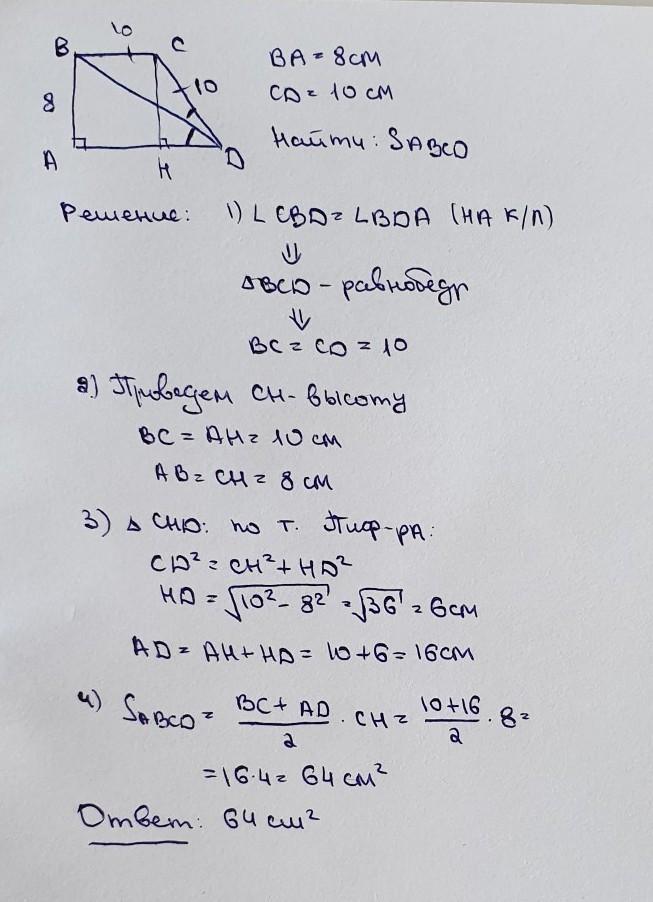 10
B C
BA = 8см
10
CD = 10 см
8
Найти: SABCD
A H D
Решение: 1) ∠CBD = ∠BDA (НА К/Л)
⇓
△BCD - равнобедр
⇓
BC = CD = 10
2) Проведем CH - высоту
BC = AH = 10 см
AB = CH = 8 см
3) △ CHD: по т. Пиф-ра:
CD² = CH² + HD²
HD = √10² - 8² = √36 = 6см
AD = AH + HD = 10 + 6 = 16см
4) SABCD = BC + AD / 2 · CH = 10+16 / 2 · 8 =
= 16·4 = 64 см²
Ответ: 64 см²